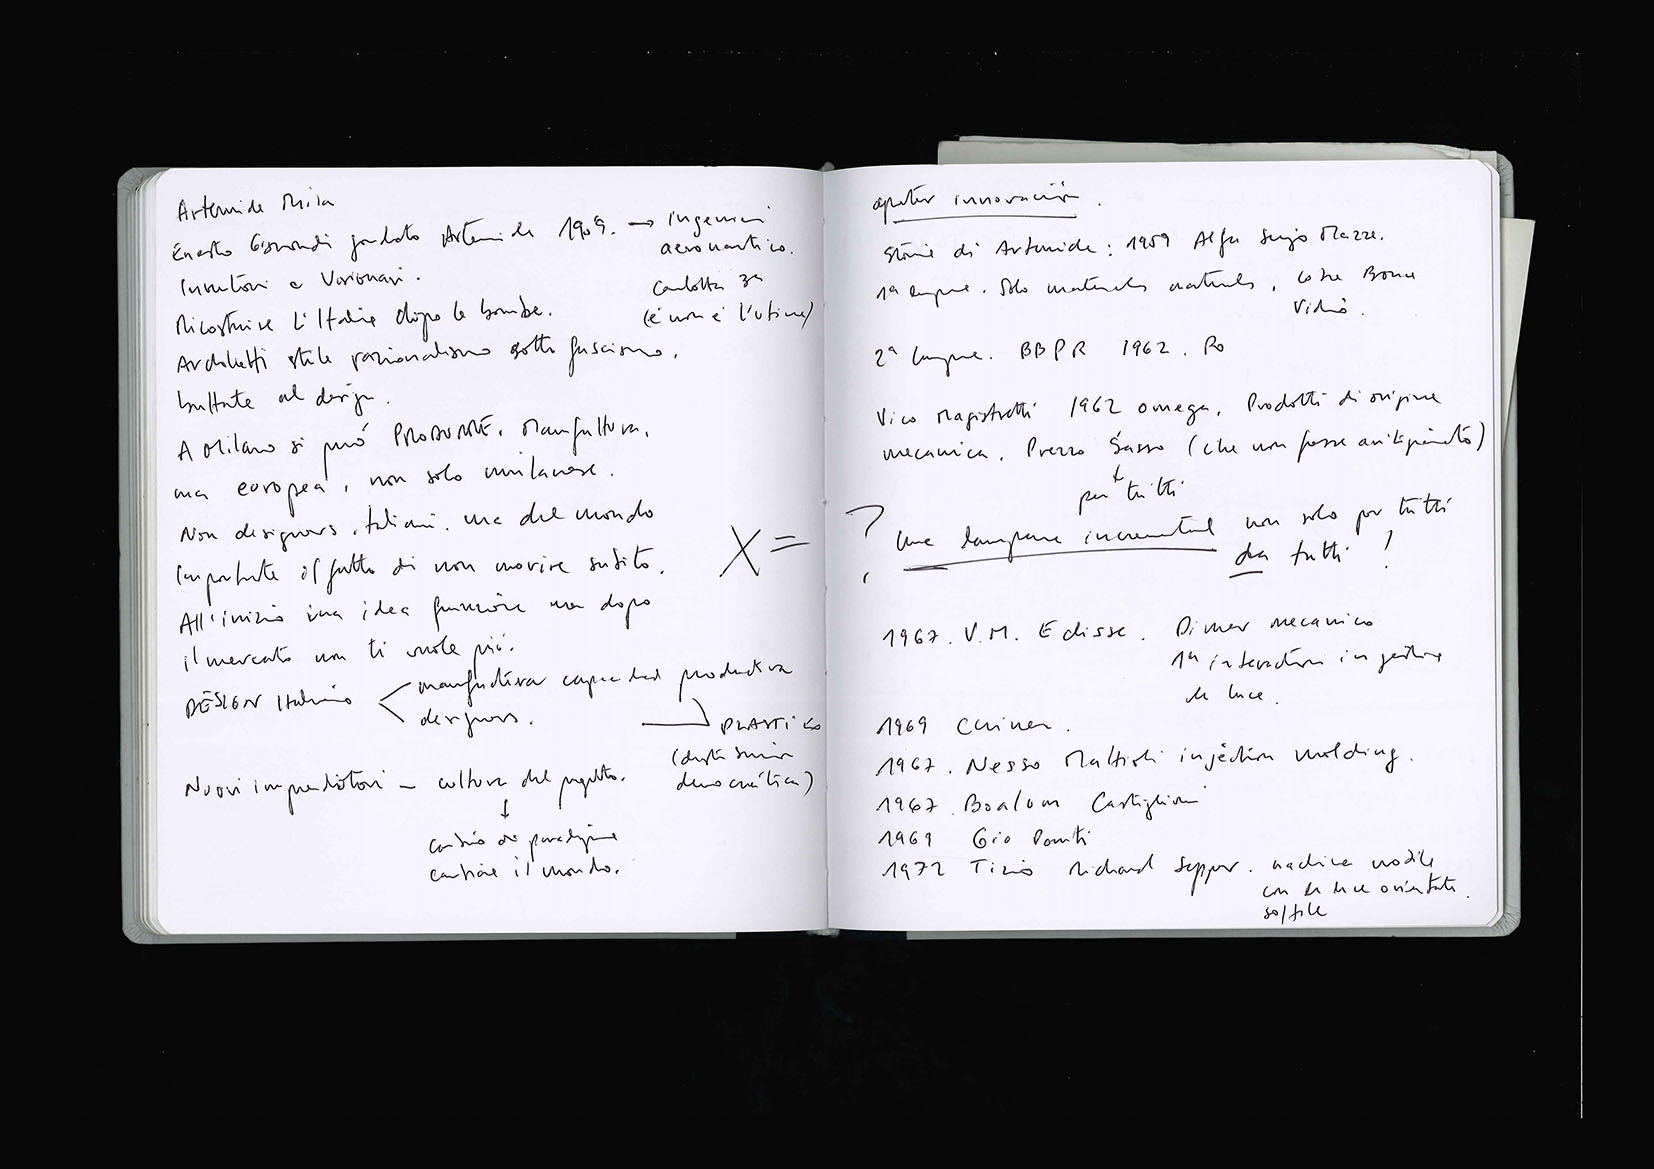 Artemide Mila
Ernesto Gismondi fondato Artemide 1909. → ingenieri
aeronautico.
Inventori e Visionari.
Carlotta 3a
(é non é l'ultima)
Ricostruire L'Italia dopo le bombe.
Architetti stile razionalismo sotto fascismo.
al design.
A Milano si può PRODURRE.
ma europea, non solo milanese.
Non designers italiani. ma del mondo
Importante il fatto di non morire subito.
All'inizio una idea funziona ma dopo
il mercato non ti vuole più.
DESIGN Italiano
capacidad productiva
designers.
PLASTICO
democrática)
Nuovi imprenditori – cultura del progetto.
↓
cambio de paradigma
cambiare il mondo.
X =
innovación.
Storia di Artemide: 1959 Alfa Sergio Mazza.
1a Solo materiales naturales, come Bonne
Vidrio.
2a BBPR 1962. Ro
Vico Magistretti 1962 omega. Prodotti di origine
mecanica. Prezzo basso (che non fosse antipiratò)
↓
per tutti
? Una lampara incremental non solo per tutti
da tutti !
1967. V.M. Eclisse. Dimer mecanico
1a interaction in gestione
de luce.
1969 Chimera.
1967. Nesso Mattioli injection molding.
1967 Boalum Castiglioni
1969 Gio Ponti
1972 Tizio Richard Sapper. machina mobile
con la luce orientata
soffile